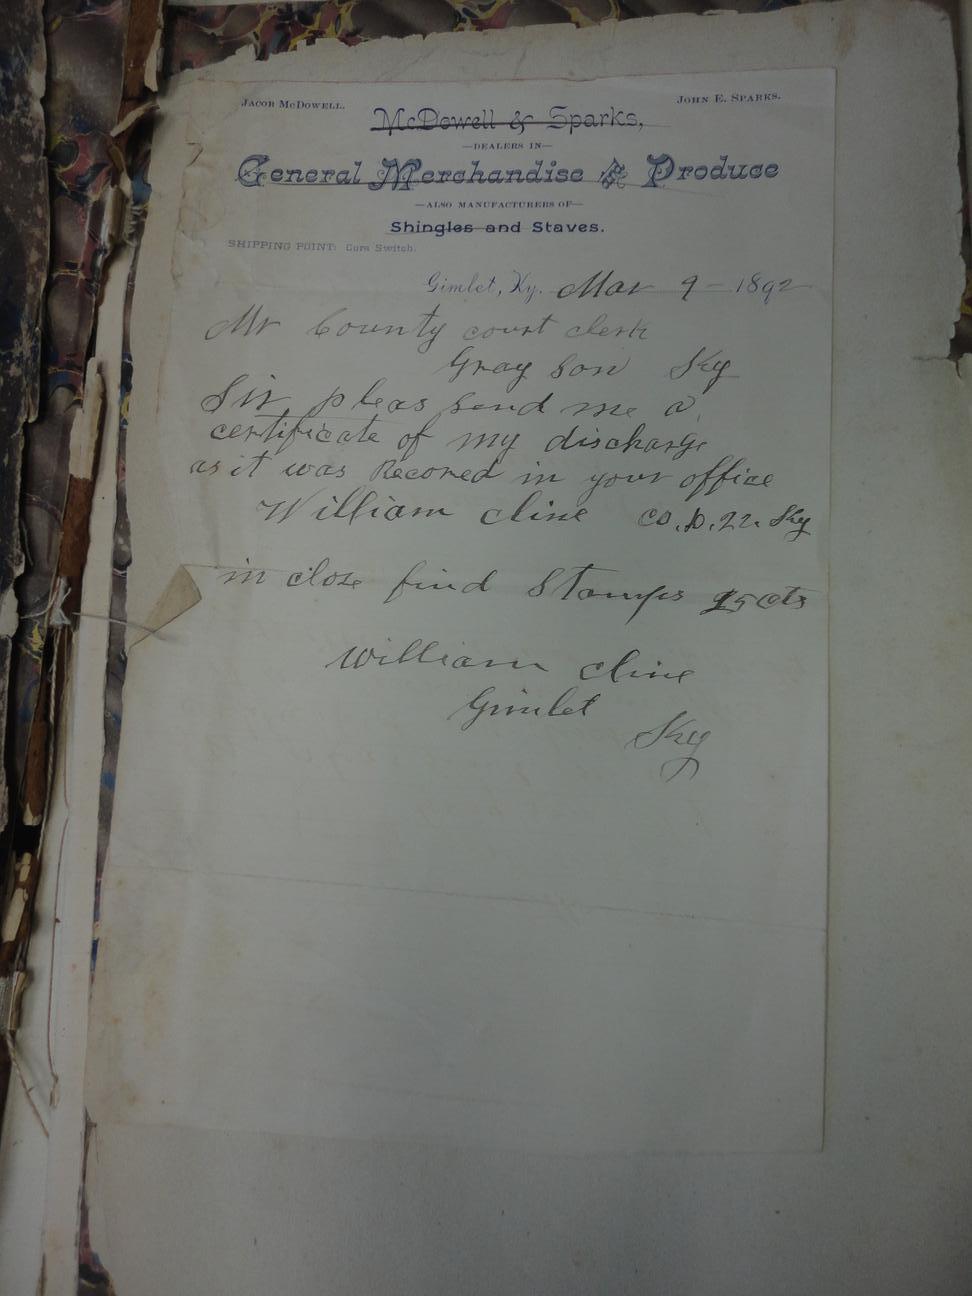 JACOB MCDOWELL.
JOHN E. SPARKS.
McDowell & Sparks,
—DEALERS IN—
General Merchandise & Produce
—ALSO MANUFACTURERS OF—
Shingles and Staves.
SHIPPING POINT: Cora Switch.
Gimlet, Ky. Mar 9 – 1892
Mr County court clerk
Gray son Ky
Sir pleas send me a
certificate of my discharge
as it was Recored in your office
William Cline co. D. 22. Ky
in close find Stamps 25 cts
William Cline
Gimlet
Ky